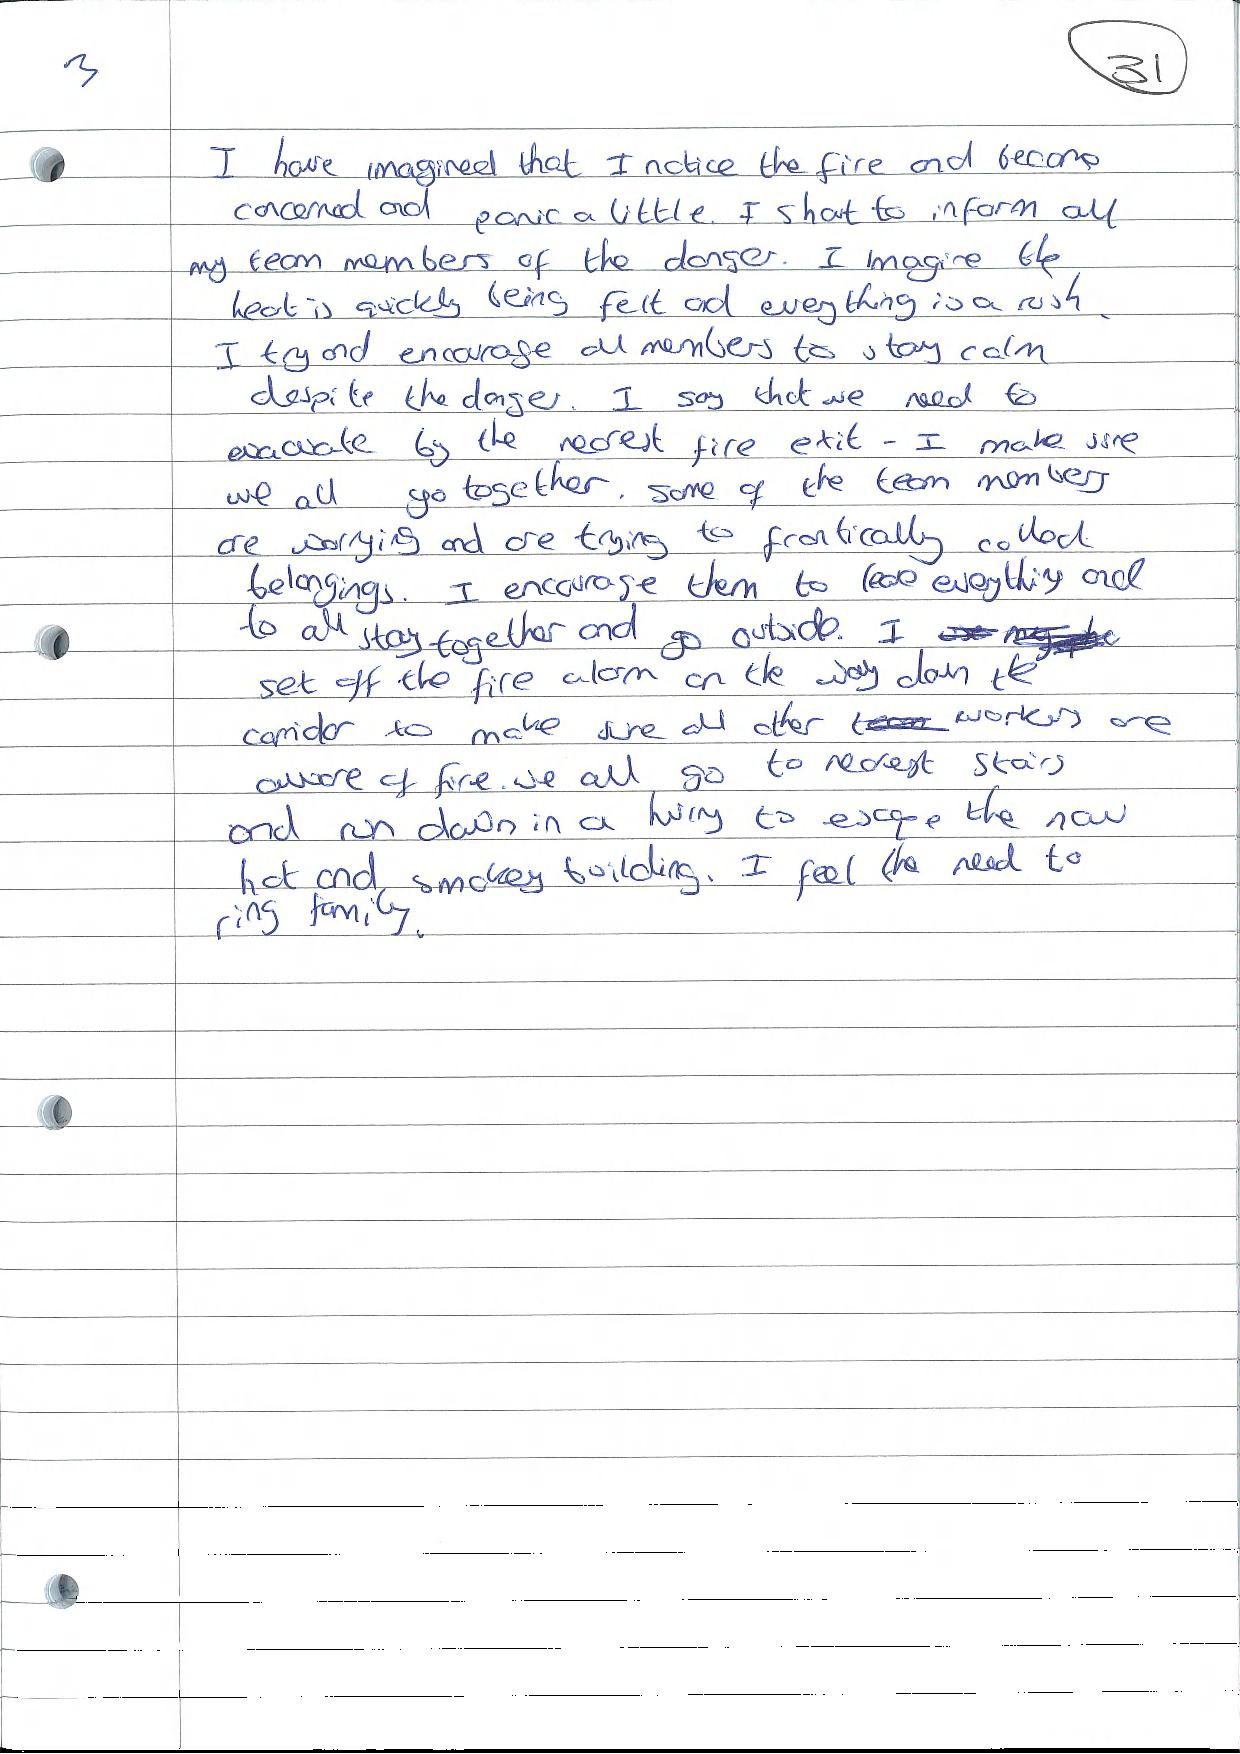 3
31
I have imagined that I notice the fire and become
concerned and panic a little. I shout to inform all
my team members of the danger. I imagine the
heat is quickly being felt and everything is a rush.
I try and encourage all members to stay calm
despite the danger. I say that we need to
evacuate by the nearest fire exit - I make sure
we all go together. some of the team members
are worrying and are trying to frantically collect
belongings. I encourage them to leave everything and
to all stay together and go outside. I
set off the fire alarm on the way down the
corridor to make sure all other team workers are
aware of fire. we all go to nearest stairs
and run down in a hurry to escape the now
hot and smokey building. I feel the need to
ring family.